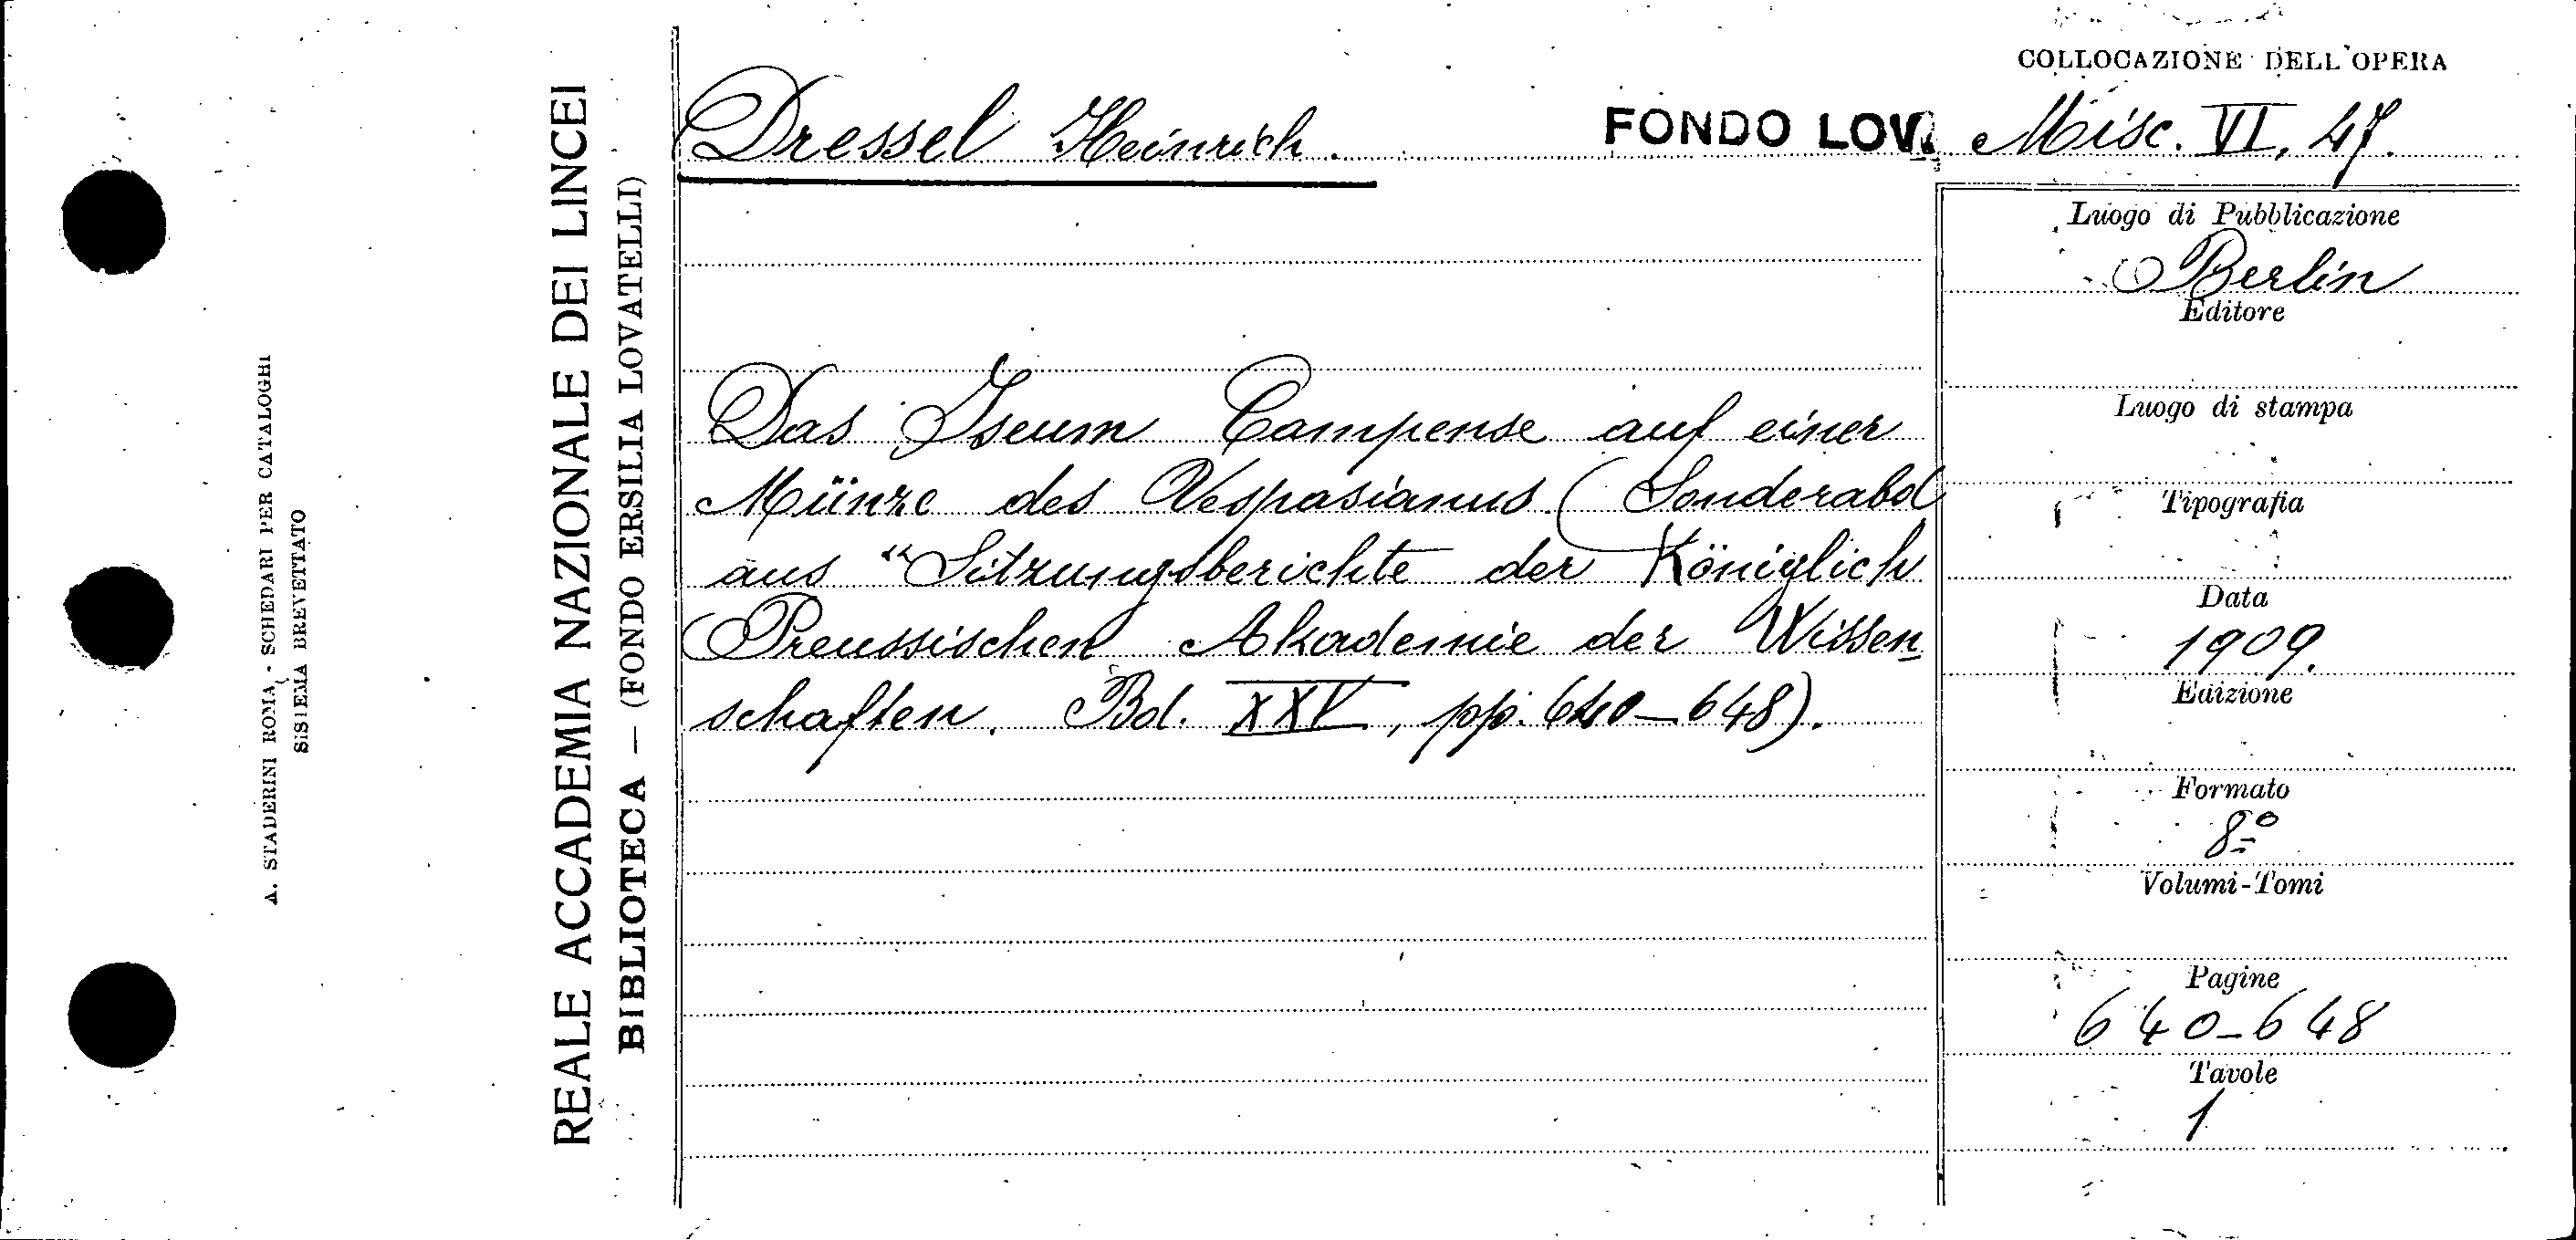 COLLOCAZIONE DELL'OPERA
Dressel Heinrich.
FONDO LOV. Misc. VI. 47.
Das Iseum Campense auf einer
Münze des Vespasianus. (Sonderabd
aus "Sitzungsberichte der Königlich
Preussischen Akademie der Wissen
schaften. Bd. XXV, pp. 640-648).
Luogo di Pubblicazione
Berlin
Editore
Luogo di stampa
Tipografia
Data
1909.
Edizione
Formato
8º
Volumi-Tomi
Pagine
640-648
Tavole
1
REALE ACCADEMIA NAZIONALE DEI LINCEI
BIBLIOTECA — (FONDO ERSILIA LOVATELLI)
A. STADERINI ROMA - SCHEDARI PER CATALOGHI
SISTEMA BREVETTATO